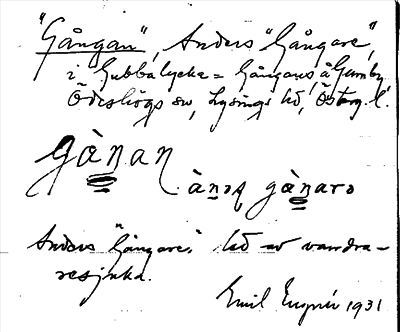 "Gångan", Anders "Gångare",
i Gubbalycke = Gångares, å Gumby
Ödeshögs sn, Lysings hd, Österg. l.
gàn̠an
àn̠əʂ gàn̠arə
Anders "Gångare." led av vandra-
resjuka.
Emil Engnér 1931